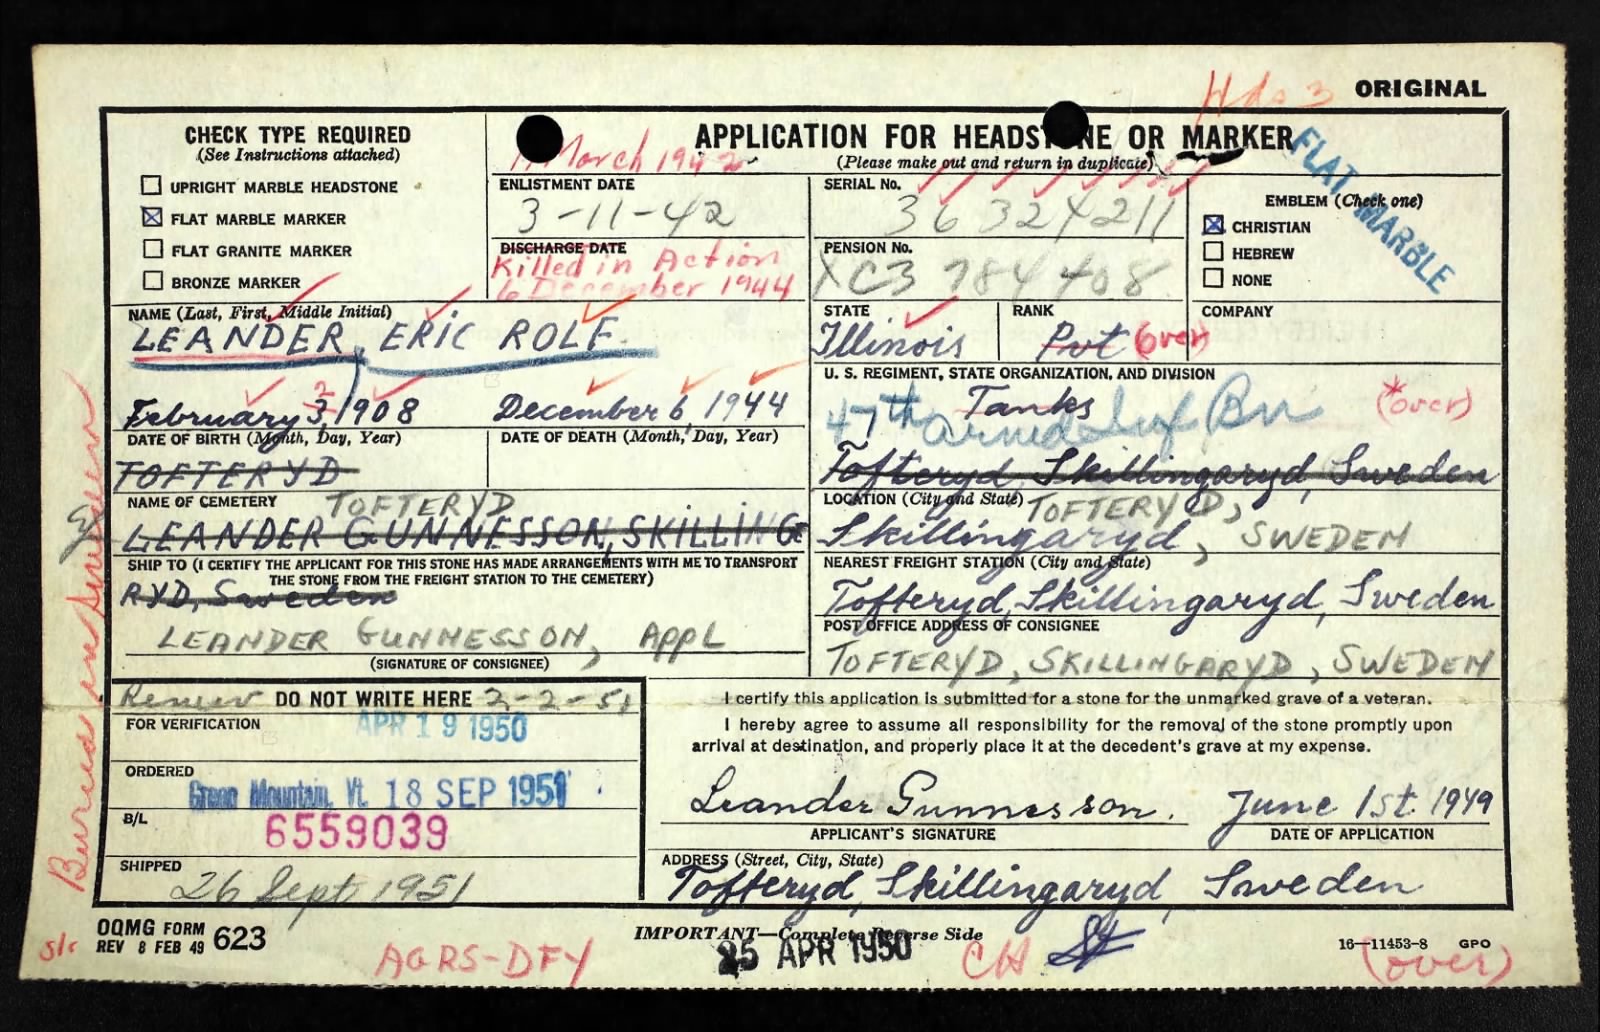 Hds 3 ORIGINAL
CHECK TYPE REQUIRED
(See Instructions attached)
UPRIGHT MARBLE HEADSTONE
FLAT MARBLE MARKER
FLAT GRANITE MARKER
BRONZE MARKER
APPLICATION FOR HEADSTONE OR MARKER
(Please make out and return in duplicate)
11 March 1942
FLAT MARBLE
ENLISTMENT DATE
3-11-42
SERIAL No.
36 324211
EMBLEM (Check one)
CHRISTIAN
HEBREW
NONE
DISCHARGE DATE
Killed in Action
6 December 1944
PENSION No.
XC3 784408
NAME (Last, First, Middle Initial)
LEANDER, ERIC ROLF.
STATE
Illinois
RANK
Pvt (over)
COMPANY
U. S. REGIMENT, STATE ORGANIZATION, AND DIVISION
Tanks
47th armed Inf Bn
* (over)
February 3, 2 1908
DATE OF BIRTH (Month, Day, Year)
December 6, 1944
DATE OF DEATH (Month, Day, Year)
TOFTERYD
NAME OF CEMETERY
TOFTERYD
Tofteryd, Skillingaryd, Sweden
LOCATION (City and State)
TOFTERYD,
LEANDER GUNNESSON, SKILLINGE
SHIP TO (I CERTIFY THE APPLICANT FOR THIS STONE HAS MADE ARRANGEMENTS WITH ME TO TRANSPORT
THE STONE FROM THE FREIGHT STATION TO THE CEMETERY)
RYD, Sweden
Skillingaryd, SWEDEN
NEAREST FREIGHT STATION (City and State)
Tofteryd, Skillingaryd, Sweden
POST OFFICE ADDRESS OF CONSIGNEE
LEANDER GUNNESSON, APPL
(SIGNATURE OF CONSIGNEE)
TOFTERYD, SKILLINGARYD, SWEDEN
Buried in Sweden
DO NOT WRITE HERE 2-2-51
FOR VERIFICATION
APR 19 1950
ORDERED
Green Mountain, Vt. 18 SEP 1951
B/L
6559039
SHIPPED
26 Sept 1951
I certify this application is submitted for a stone for the unmarked grave of a veteran.
I hereby agree to assume all responsibility for the removal of the stone promptly upon
arrival at destination, and properly place it at the decedent's grave at my expense.
Leander Gunnesson. June 1st. 1949
APPLICANT'S SIGNATURE
DATE OF APPLICATION
ADDRESS (Street, City, State)
Tofteryd, Skillingaryd, Sweden
OQMG FORM
REV 8 FEB 49 623
IMPORTANT—Complete Reverse Side
16—11453-8 GPO
s/c
AGRS-DFY
25 APR 1950
CH
(over)